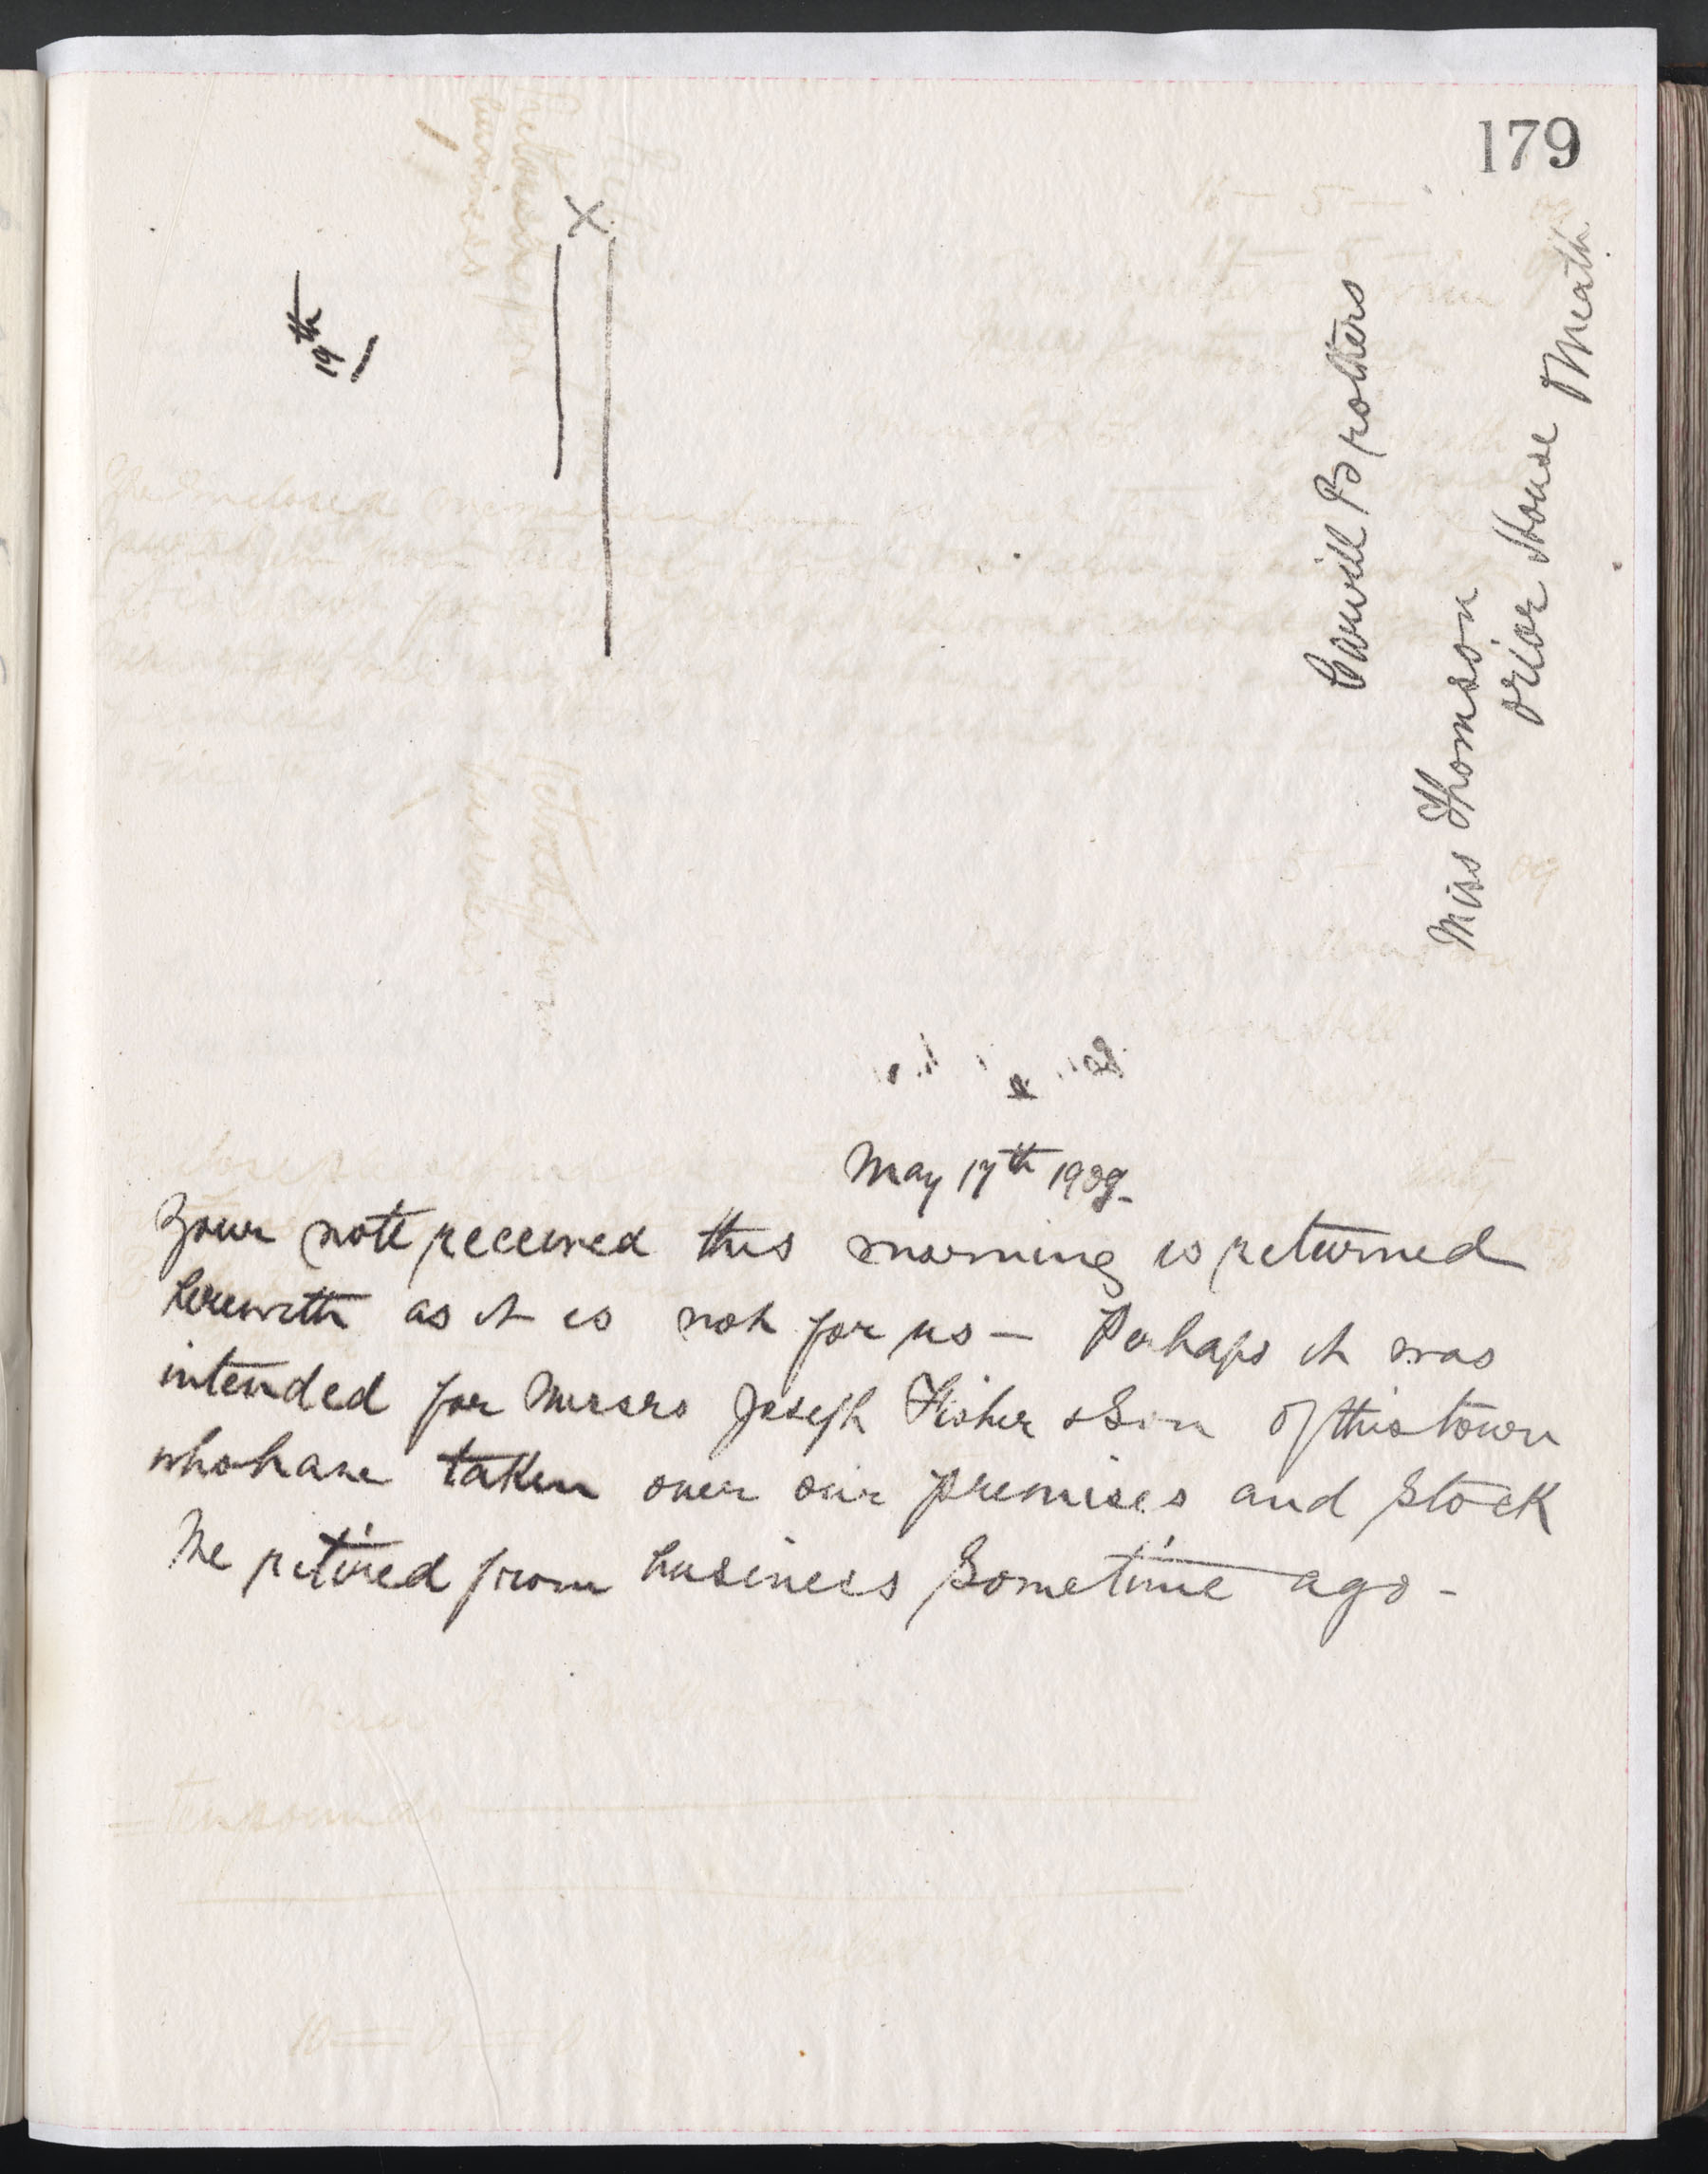 179
19th
X
Carvill Brothers
Miss Thomson
Prior House Omeath
May 17th 1909-
Your note received this morning is returned
herewith as it is not for us — Perhaps it was
intended for Messrs Joseph Fisher & Son of this town
who have taken over our premises and Stock
We retired from business Sometime ago -